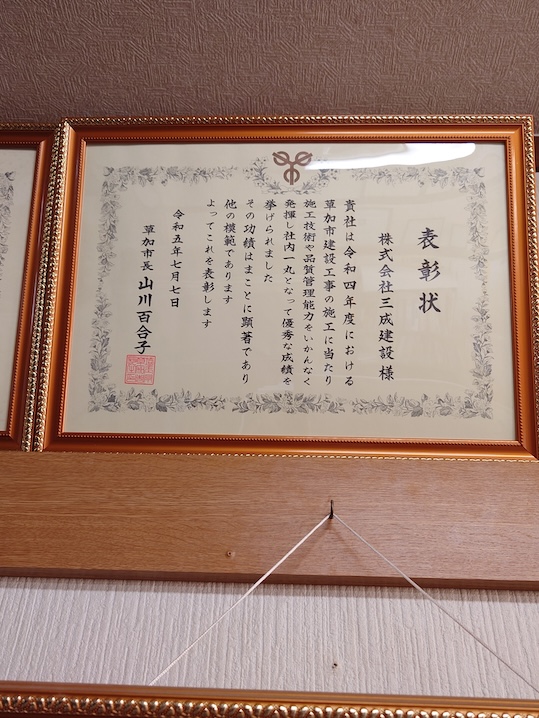 表彰状
株式会社三成建設様
貴社は令和四年度における
草加市建設工事の施工に当たり
施工技術や品質管理能力をいかんなく
発揮し社内一丸となって優秀な成績を
挙げられました
その功績はまことに顕著であり
他の模範であります
よってこれを表彰します
令和五年七月七日
草加市長 山川百合子